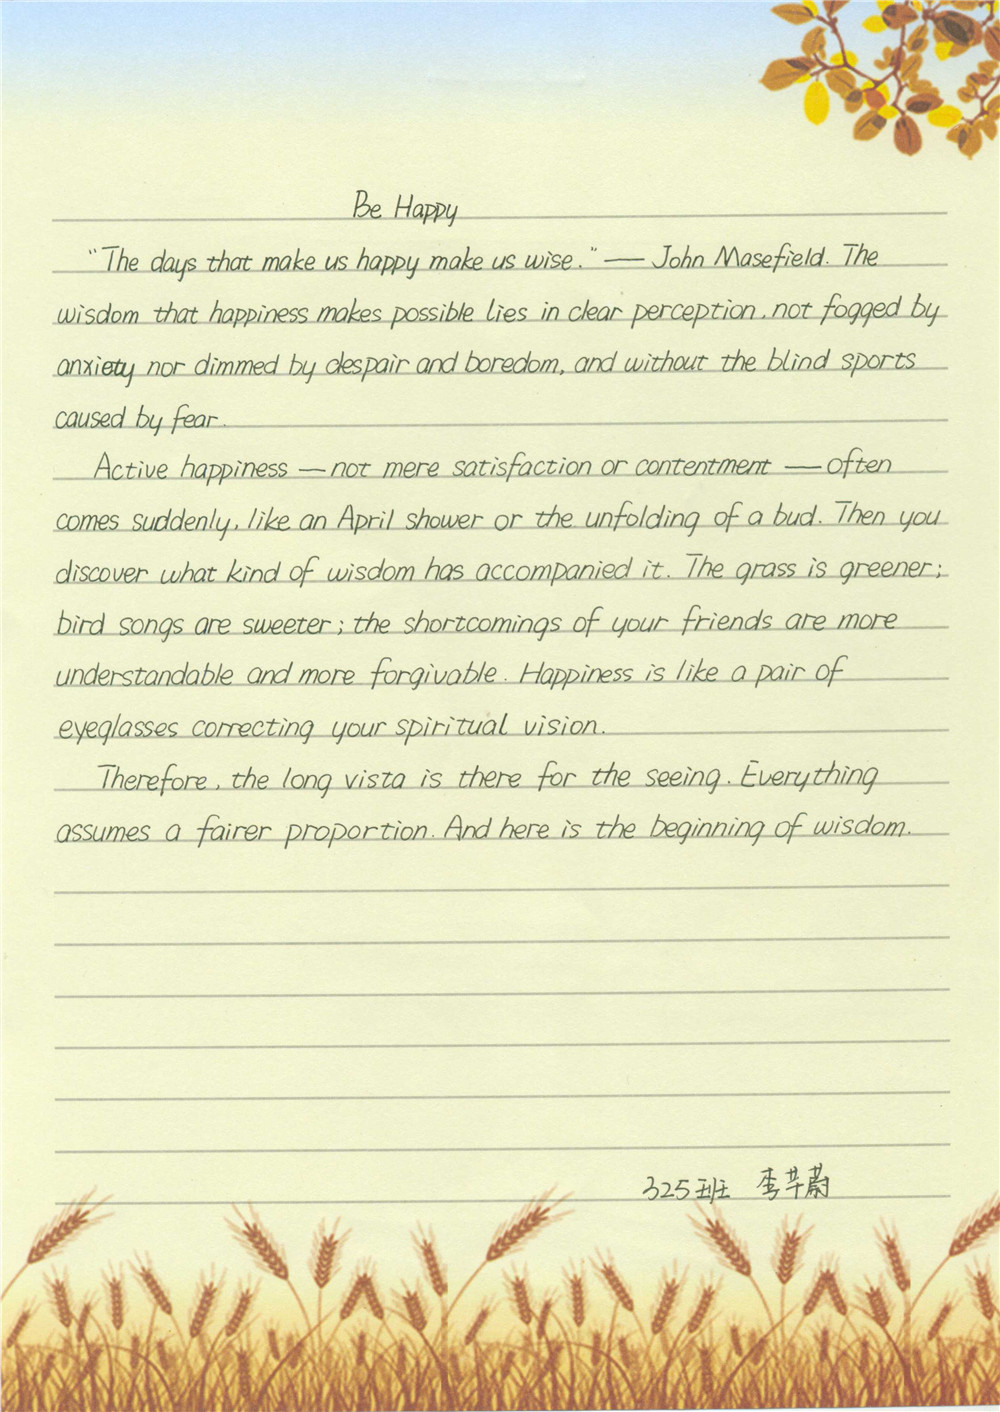 Be Happy
"The days that make us happy make us wise." — John Masefield. The
wisdom that happiness makes possible lies in clear perception, not fogged by
anxiety nor dimmed by despair and boredom, and without the blind sports
caused by fear.
Active happiness — not mere satisfaction or contentment — often
comes suddenly, like an April shower or the unfolding of a bud. Then you
discover what kind of wisdom has accompanied it. The grass is greener;
bird songs are sweeter; the shortcomings of your friends are more
understandable and more forgivable. Happiness is like a pair of
eyeglasses correcting your spiritual vision.
Therefore, the long vista is there for the seeing. Everything
assumes a fairer proportion. And here is the beginning of wisdom.
325班 李芊蔚